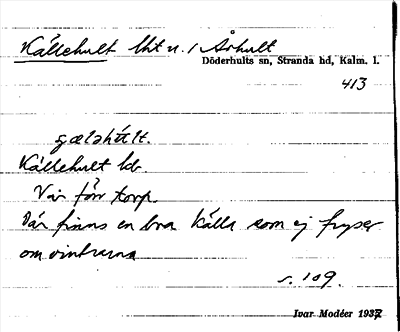 Källehult lht n. 1 Århult
Döderhults sn, Stranda hd, Kalm. l.
413
Källehult hb.
Var förr torp.
Där finns en bra källa som ej fryser
om vintrarna
s. 109.
Ivar Modéer 1937